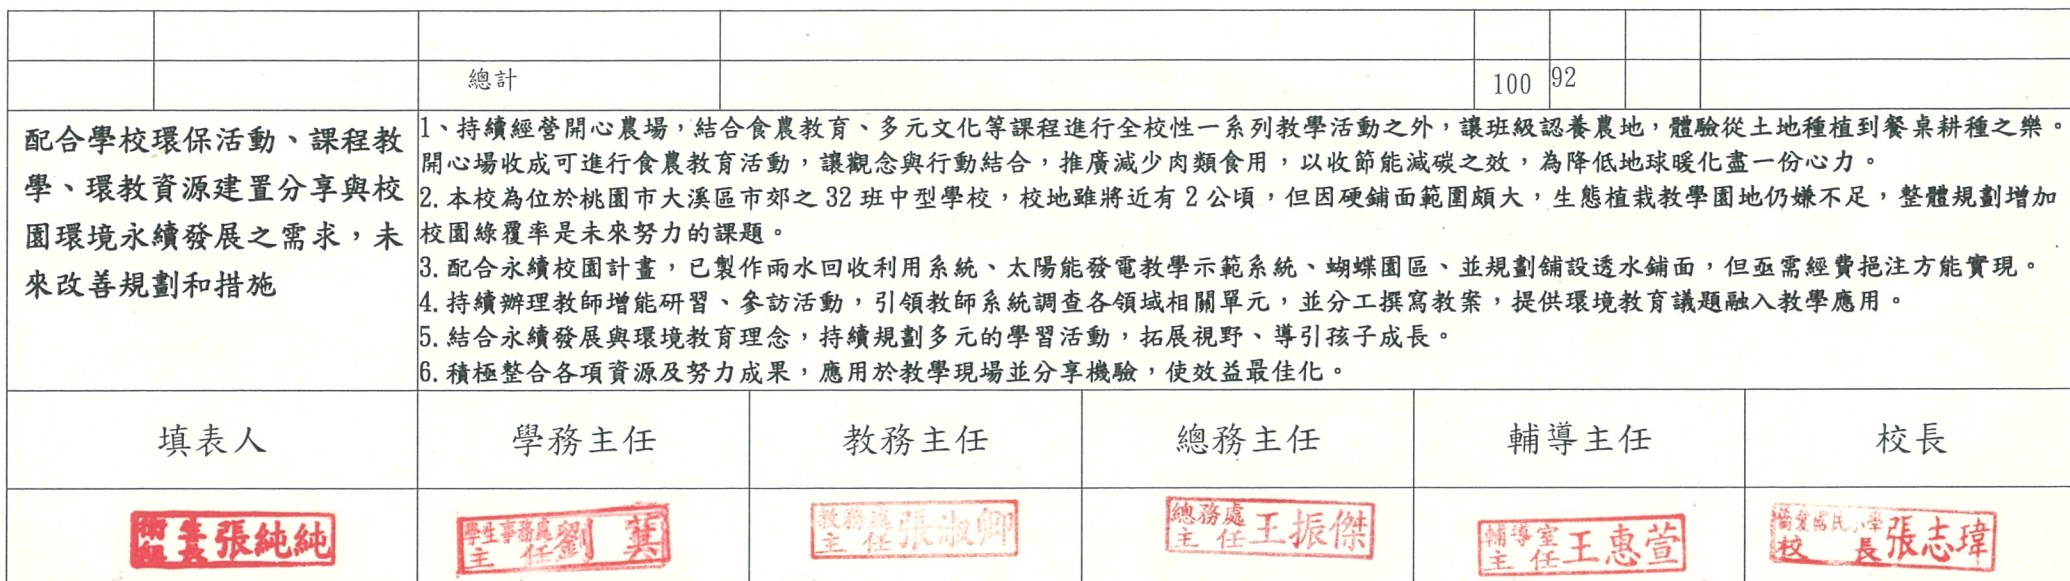 總計 100 92
配合學校環保活動、課程教
學、環教資源建置分享與校
園環境永續發展之需求，未
來改善規劃和措施
1、持續經營開心農場，結合食農教育、多元文化等課程進行全校性一系列教學活動之外，讓班級認養農地，體驗從土地種植到餐桌耕種之樂。
開心場收成可進行食農教育活動，讓觀念與行動結合，推廣減少肉類食用，以收節能減碳之效，為降低地球暖化盡一份心力。
2.本校為位於桃園市大溪區市郊之 32 班中型學校，校地雖將近有 2 公頃，但因硬鋪面範圍頗大，生態植栽教學園地仍嫌不足，整體規劃增加
校園綠覆率是未來努力的課題。
3.配合永續校園計畫，已製作雨水回收利用系統、太陽能發電教學示範系統、蝴蝶園區、並規劃舖設透水鋪面，但亟需經費挹注方能實現。
4.持續辦理教師增能研習、參訪活動，引領教師系統調查各領域相關單元，並分工撰寫教案，提供環境教育議題融入教學應用。
5.結合永續發展與環境教育理念，持續規劃多元的學習活動，拓展視野、導引孩子成長。
6.積極整合各項資源及努力成果，應用於教學現場並分享機驗，使效益最佳化。
填表人 學務主任 教務主任 總務主任 輔導主任 校長
衛生組長 張純純
學生事務處主任 劉
教務處主任 張淑卿
總務處主任 王振傑
輔導室主任 王惠萱
僑愛國民小學校長 張志瑋